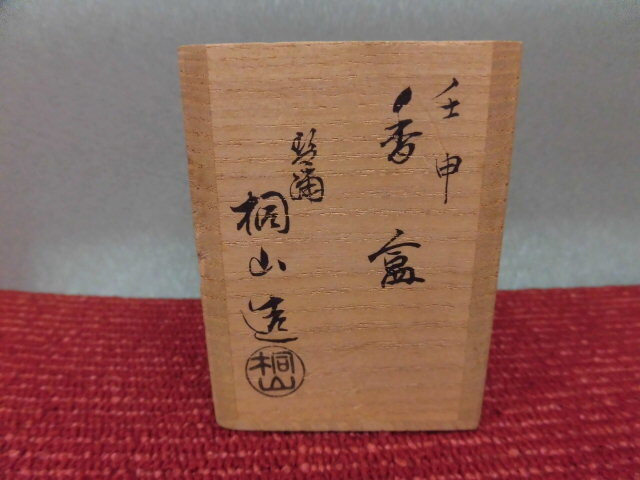 壬申
香盒
桐山造
桐山